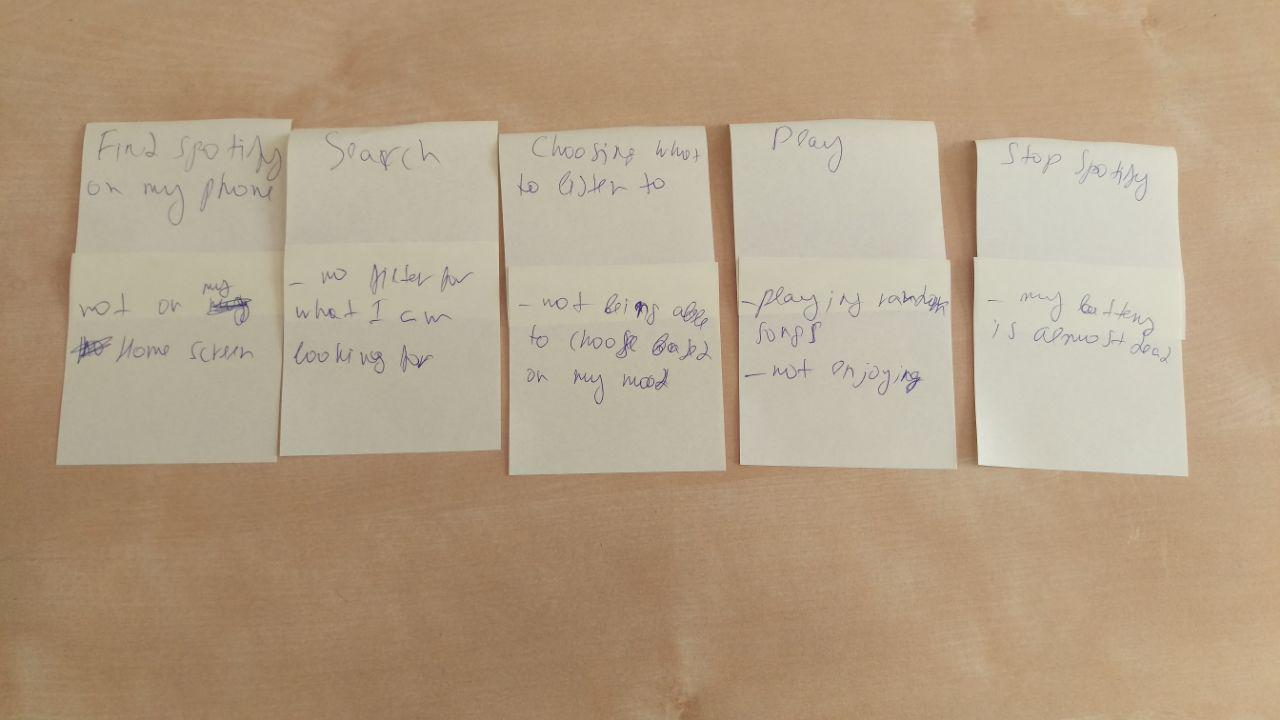 Find Spotify
on my phone
not on my
Home screen
Search
- no filter for
what I am
looking for
Choosing what
to listen to
- not being able
to choose based
on my mood
Play
- playing random
songs
- not enjoying
Stop Spotify
- my battery
is almost dead